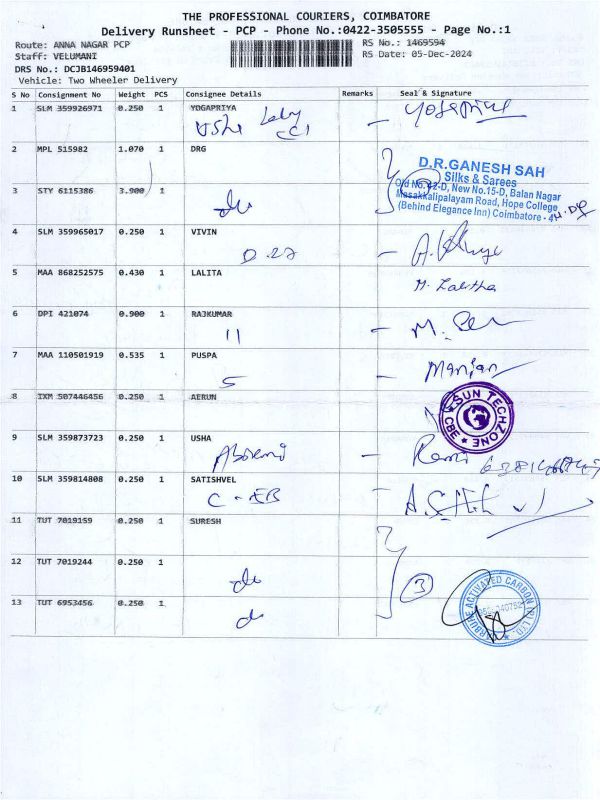 THE PROFESSIONAL COURIERS, COIMBATORE
Delivery Runsheet - PCP - Phone No.:0422-3505555 - Page No.:1
Route: ANNA NAGAR PCP RS No.: 1469594
Staff: VELUMANI RS Date: 05-Dec-2024
DRS No.: DCJB146959401
Vehicle: Two Wheeler Delivery
S No Consignment No Weight PCS Consignee Details Remarks Seal & Signature
1 SLM 359926971 0.250 1 YOGAPRIYA
2 MPL 515982 1.070 1 DRG
D.R.GANESH SAH
Silks & Sarees
Old No.42-D, New No.15-D, Balan Nagar
Masakkalipalayam Road, Hope College
(Behind Elegance Inn) Coimbatore - 4
3 STY 6115386 3.900 1
4 SLM 359965017 0.250 1 VIVIN
D.27
5 MAA 868252575 0.430 1 LALITA M. Lalitha
6 DPI 421074 0.900 1 RAJKUMAR
11
7 MAA 110501919 0.535 1 PUSPA
5
8 IXM 507446456 0.250 1 AERUN
SUN TECHZONE CBE
9 SLM 359873723 0.250 1 USHA
10 SLM 359814808 0.250 1 SATISHVEL
C - EB
11 TUT 7019159 0.250 1 SURESH
12 TUT 7019244 0.250 1
3
13 TUT 6953456 0.250 1
ACTIVATED CARBON